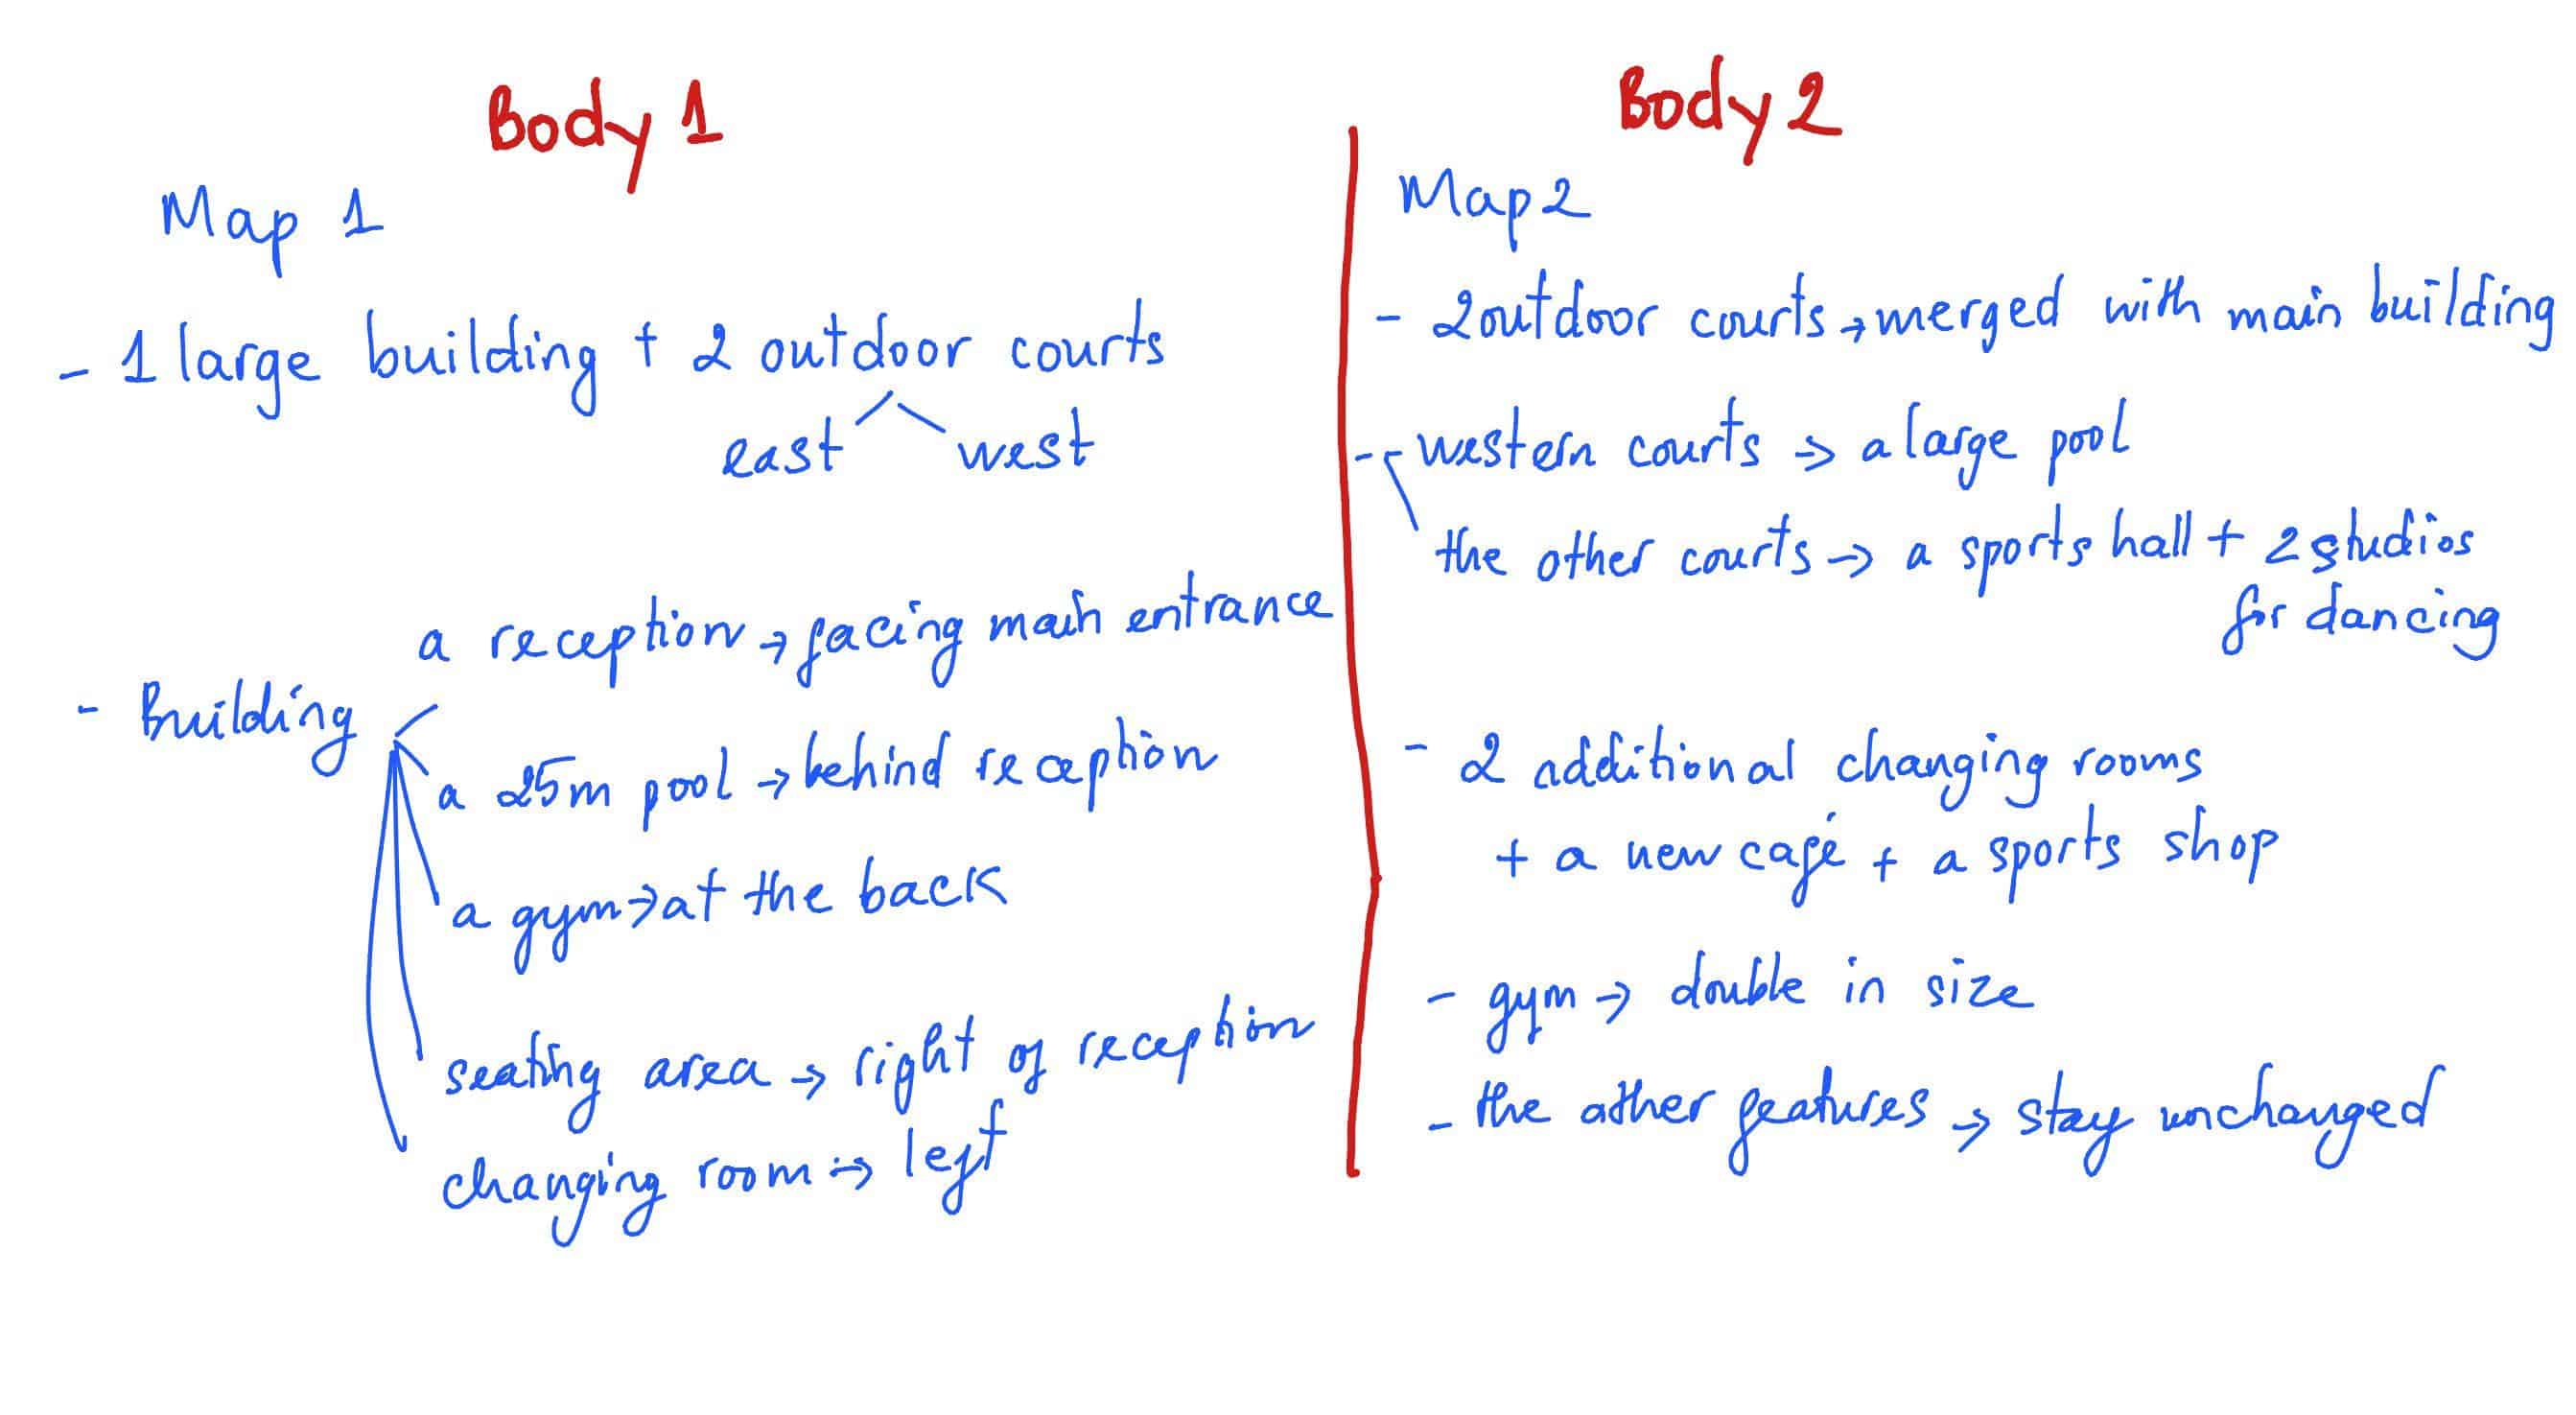 Body 1
Map 1
- 1 large building + 2 outdoor courts
east west
- Building
a reception → facing main entrance
a 25m pool → behind reception
a gym → at the back
seating area → right of reception
changing room → left
Body 2
Map 2
- 2 outdoor courts → merged with main building
- western courts → a large pool
the other courts → a sports hall + 2 studios
for dancing
- 2 additional changing rooms
+ a new café + a sports shop
- gym → double in size
- the other features → stay unchanged